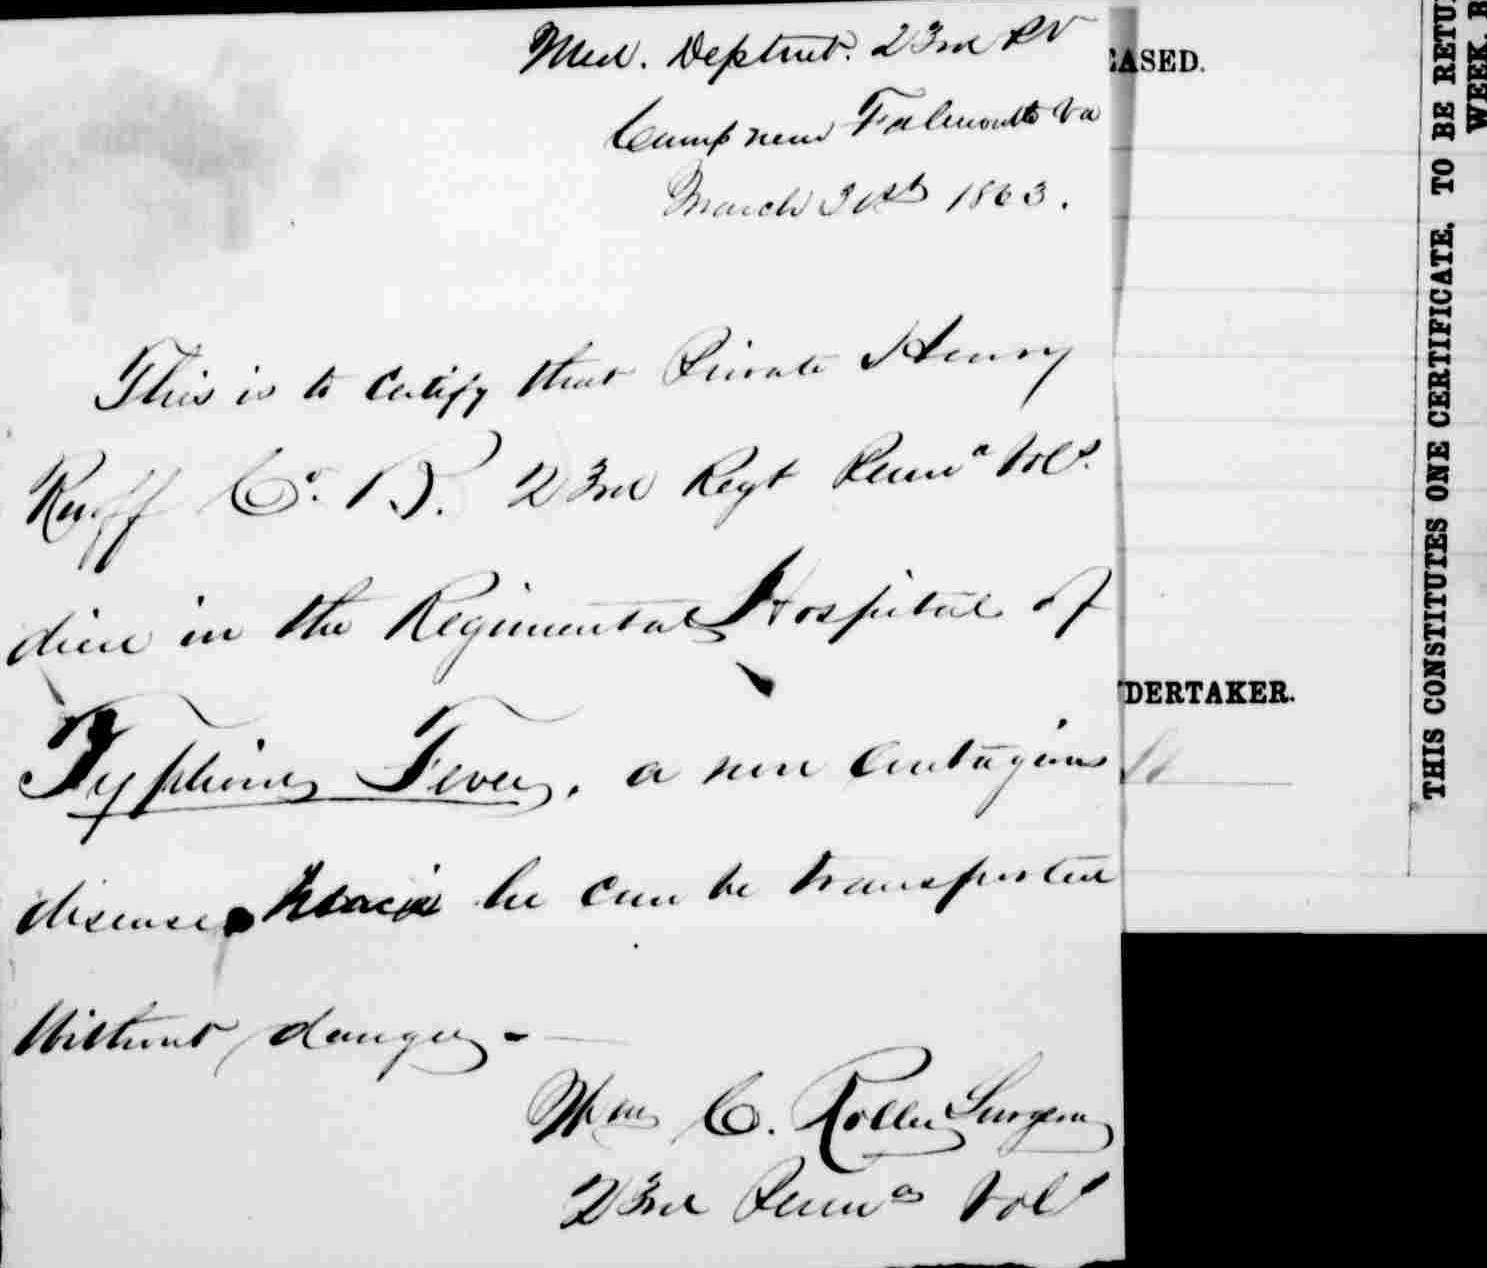 Med. Deptmt. 23rd PV
Camp near Falmouth Va
March 31st 1863.
This is to certify that Private Henry
Ruff Co. B. 23rd Regt Penna Vols.
died in the Regimental Hospital of
Typhoid Fever, a non contagious
disease he can be transported
Without danger -
Wm C. Roller Surgeon
23rd Penna Vols
EASED.
DERTAKER.
THIS CONSTITUTES ONE CERTIFICATE. TO BE RETU
WEEK.